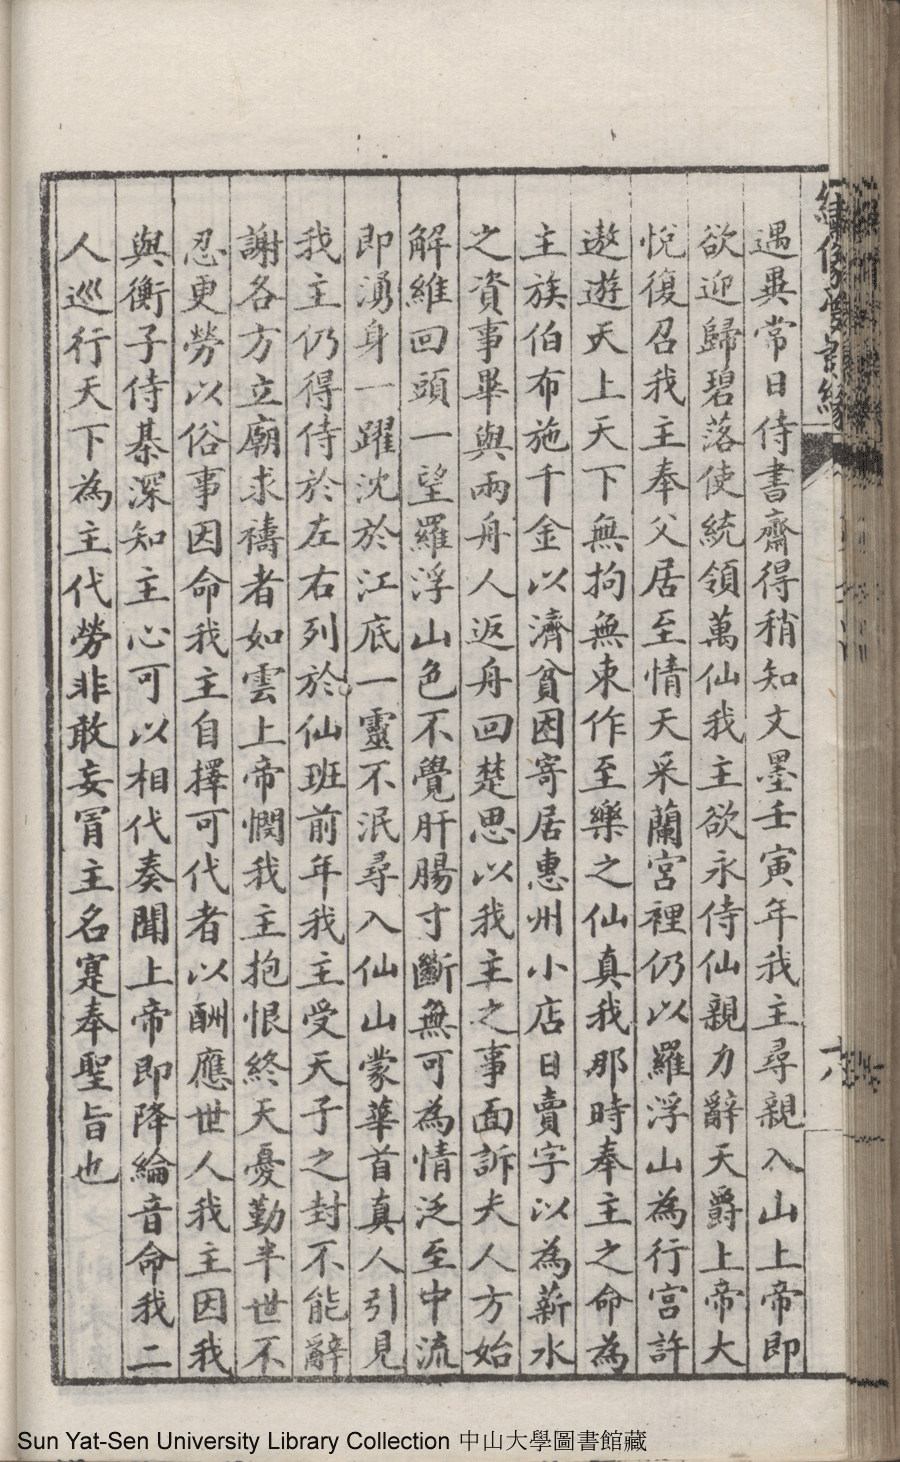 繡像愛園緣
遇異常日侍書齋得稍知文墨壬寅年我主尋親入山上帝即
欲迎歸碧落使統領萬仙我主欲永侍仙親力辭天爵上帝大
悅復召我主奉父居至情天采蘭宮裡仍以羅浮山為行宮許
遨遊天上天下無拘無束作至樂之仙真我那時奉主之命為
主族伯布施千金以濟貧困寄居惠州小店日賣字以為薪水
之資事畢與兩舟人返舟回楚思以我主之事面訴夫人方始
解維回頭一望羅浮山色不覺肝腸寸斷無可為情泛至中流
即湧身一躍沈於江底一靈不泯尋入仙山蒙華首真人引見
我主仍得侍於左右列於仙班前年我主受天子之封不能辭
謝各方立廟求禱者如雲上帝憫我主抱恨終天憂勤半世不
忍更勞以俗事因命我主自擇可代者以酬應世人我主因我
與衡子侍棊深知主心可以相代奏聞上帝即降綸音命我二
人巡行天下為主代勞非敢妄冐主名寔奉聖旨也
Sun Yat-Sen University Library Collection 中山大學圖書館藏